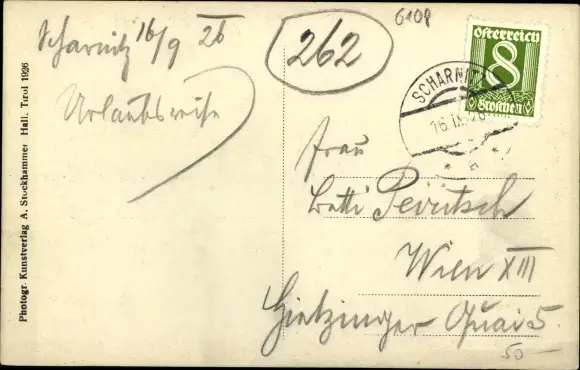 Scharnitz 16/9 26
Urlaubsreise
262
6108
Österreich
8
Groschen
SCHARNITZ
16.IX.26
Frau
Betti Perutsch
Wien XIII
Hietzinger Quai 5.
50 —
Photogr. Kunstverlag A. Stockhammer Hall, Tirol 1926